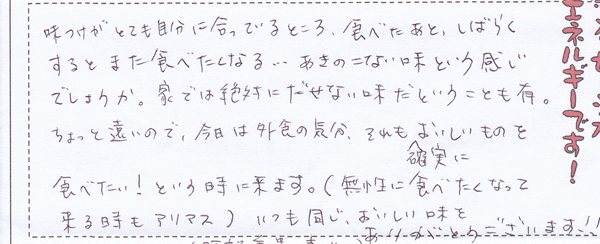 味つけがとても自分に合っているところ、食べたあと、しばらく
するとまた食べたくなる… あきのこない味という感じ
でしょうか。家では絶対にだせない味だということも有。
ちょっと遠いので、今日は外食の気分、それもおいしいものを
確実に
食べたい！という時に来ます。（無性に食べたくなって
来る時もアリマス）いつも同じ、おいしい味を
ありがとうございます！！
エネルギーです！